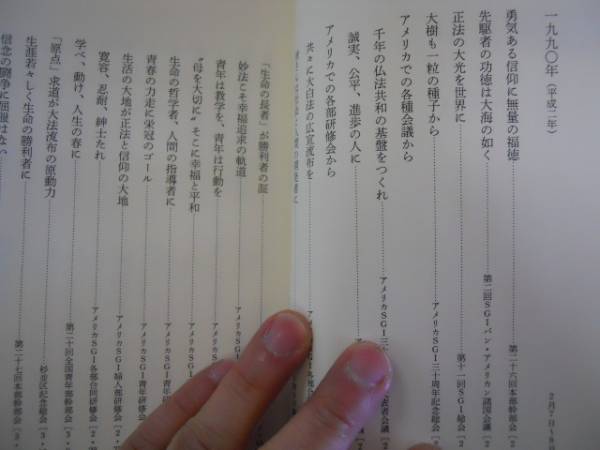 一九九〇年（平成二年）
2月7日〜8日
勇気ある信仰に無量の福徳……第二十六回本部幹部会［2・
先駆者の功徳は大海の如く……第二回SGIパン・アメリカン諸国会議［2・
正法の大光を世界に……第十一回SGI総会［2・
大樹も一粒の種子から……アメリカSGI三十周年記念総会［2・
アメリカでの各種会議から
千年の仏法共和の基盤をつくれ……アメリカSGI三十
誠実、公平、進歩の人に
アメリカでの各部研修会から
共々に大白法の広宣流布を……アメリカSGI
「生命の長者」が勝利者の証……アメリカSGI
妙法こそ幸福追求の軌道……アメリカSGI
青年は教学を、青年は行動を……アメリカSGI青年
“母を大切に”そこに幸福と平和……アメリカSGI
生命の哲学者、人間の指導者に……アメリカSGI青年研修会［2・
青春の力走に栄冠のゴール……アメリカSGI青年研修会［2・
生活の大地が正法と信仰の大地……アメリカSGI婦人部研修会［2・
寛容、忍耐、紳士たれ……アメリカSGI各部合同研修会［2・
学べ、動け、人生の春に……第二十回全国青年部幹部会［3・
「原点」求道が大法流布の原動力……杉並区記念総会［3・
生涯若々しく生命の勝利者に……第二十七回本部幹部会［3・
信念の闘争に屈服はない